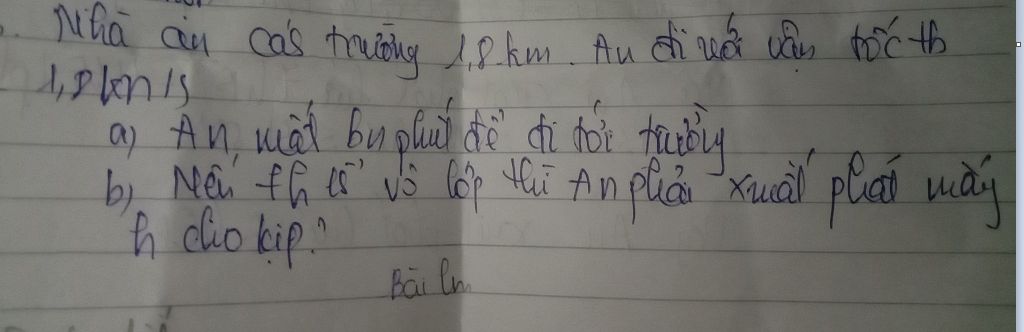 Nhà An cás trường 1,8 km. An đi với vận tốc tb
1,8 km/s
a) An mất bn phút để đi tới trường
b) Nếu 7h15' vô lớp thì An phải xuất phát mấy
h cho kịp?
Bài lm